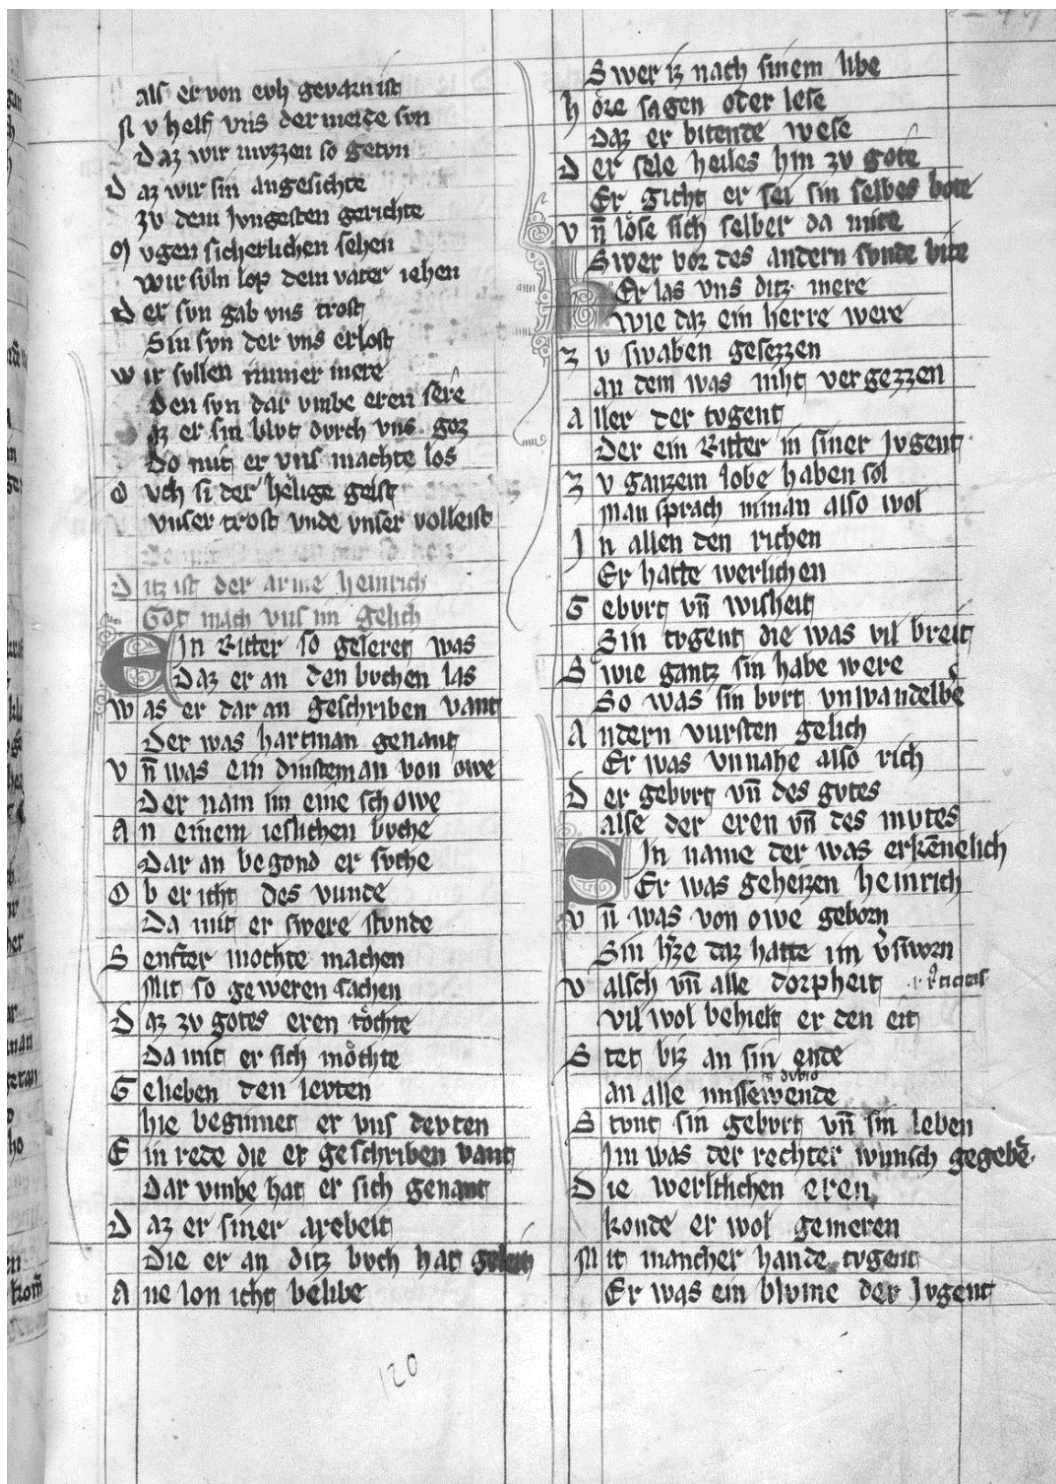 als er von evh gevarn ist
Nv helf vns der meide svn
Daz wir mvzzen so getvn
Daz wir sin angesichte
zv dem Jvngesten gerichte
Mvgen sicherlichen sehen
wir svln lop dem vater iehen
Der svn gab vns trost
Sin svn der vns erlost
wir svllen nimmer mere
Den svn dar vmbe eren sere
az er sin blvt dvrch vns goz
Do mit er vns machte los
Ovch si der heilige geist
vnser trost vnde vnser volleist
Ditz ist der arme heinrich
Got mach vns im gelich
Ein Ritter so geleret was
Daz er an den bvchen las
was er dar an geschriben vant
Der was hartman genant
vn̄ was ein dinsteman von owe
Der nam im eine schowe
An einem ieslichen bvche
Dar an begond er svche
Ob er icht des vunde
Da mit er swere stvnde
Senfter mochte machen
Mit so geweren sachen
Daz zv gotes eren tochte
Da mit er sich mochte
Gelieben den levten
hie beginnet er vns devten
Ein rede die er geschriben vant
Dar vmbe hat er sich genant
Daz er siner arebeit
Die er an ditz bvch hat geleit
Ane lon icht belibe
Swer iz nach sinem libe
hore sagen oder lese
Daz er bitende wese
Der sele heiles hin zv gote
Er gicht er sei sin selbes bote
vn̄ lose sich selber da mite
Swer vor des andern svnde bite
Er las vns ditz mere
wie daz ein herre were
zv swaben gesezzen
an dem was niht vergezzen
aller der tvgent
Der ein Ritter in siner Jvgent
zv ganzem lobe haben sol
man sprach niman also wol
Jn allen den richen
Er hatte werlichen
Gebvrt vn̄ wisheit
Sin tvgent die was vil breit
Swie gantz sin habe were
So was sin bvrt vnwandelbe
Andern vursten gelich
Er was vnnahe also rich
Der gebvrt vn̄ des gvtes
alse der eren vn̄ des mvtes
Sin name der was erkēnelich
Er was geheizen heinrich
vn̄ was von owe geborn
Sin h'ze daz hatte im v'sworn
valsch vn̄ alle dorpheit
vil wol behielt er den eit
Stet biz an sin ende
an alle missewende
Stvnt sin gebvrt vn̄ sin leben
Jm was der rechter wunsch gegebē
Die werltlichen eren
konde er wol gemeren
Mit mancher hande tvgent
Er was ein blvme der Jvgent
120